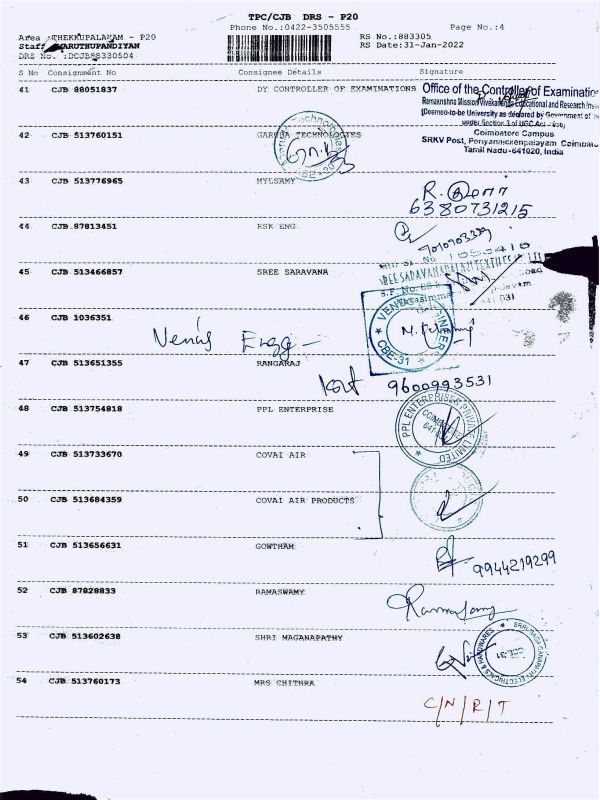 TPC/CJB DRS - P20
Phone No.:0422-3505555 Page No.:4
Area :THEKKUPALAYAM - P20 RS No.:883305
Staff :MARUTHUPANDIYAN RS Date:31-Jan-2022
DRS No. :DCJB88330504
S No Consignment No Consignee Details Signature
41 CJB 88051837 DY CONTROLLER OF EXAMINATIONS
Office of the Controller of Examinatio
Ramakrishna Mission Vivekananda Educational and Research
(Deemed-to-be University as declared by Government of
under Section 3 of UGC Act
Coimbatore Campus
SRKV Post, Periyanaickenpalayam, Coimbato
Tamil Nadu-641020, India
42 CJB 513760151 GARUDA TECHNOLOGIES
43 CJB 513776965 MYLSAMY
6380731215
44 CJB 87813451 RSK ENG
45 CJB 513466857 SREE SARAVANA
46 CJB 1036351
Venus Engg
CBE-31
47 CJB 513651355 RANGARAJ
9600993531
48 CJB 513754818 PPL ENTERPRISE
PPL ENTERPRISES PRIVATE LIMITED
49 CJB 513733670 COVAI AIR
50 CJB 513684359 COVAI AIR PRODUCTS
51 CJB 513656631 GOWTHAM
9944219299
52 CJB 87828833 RAMASWAMY
53 CJB 513602638 SHRI MAGANAPATHY
54 CJB 513760173 MRS CHITHRA
C/N/R/T